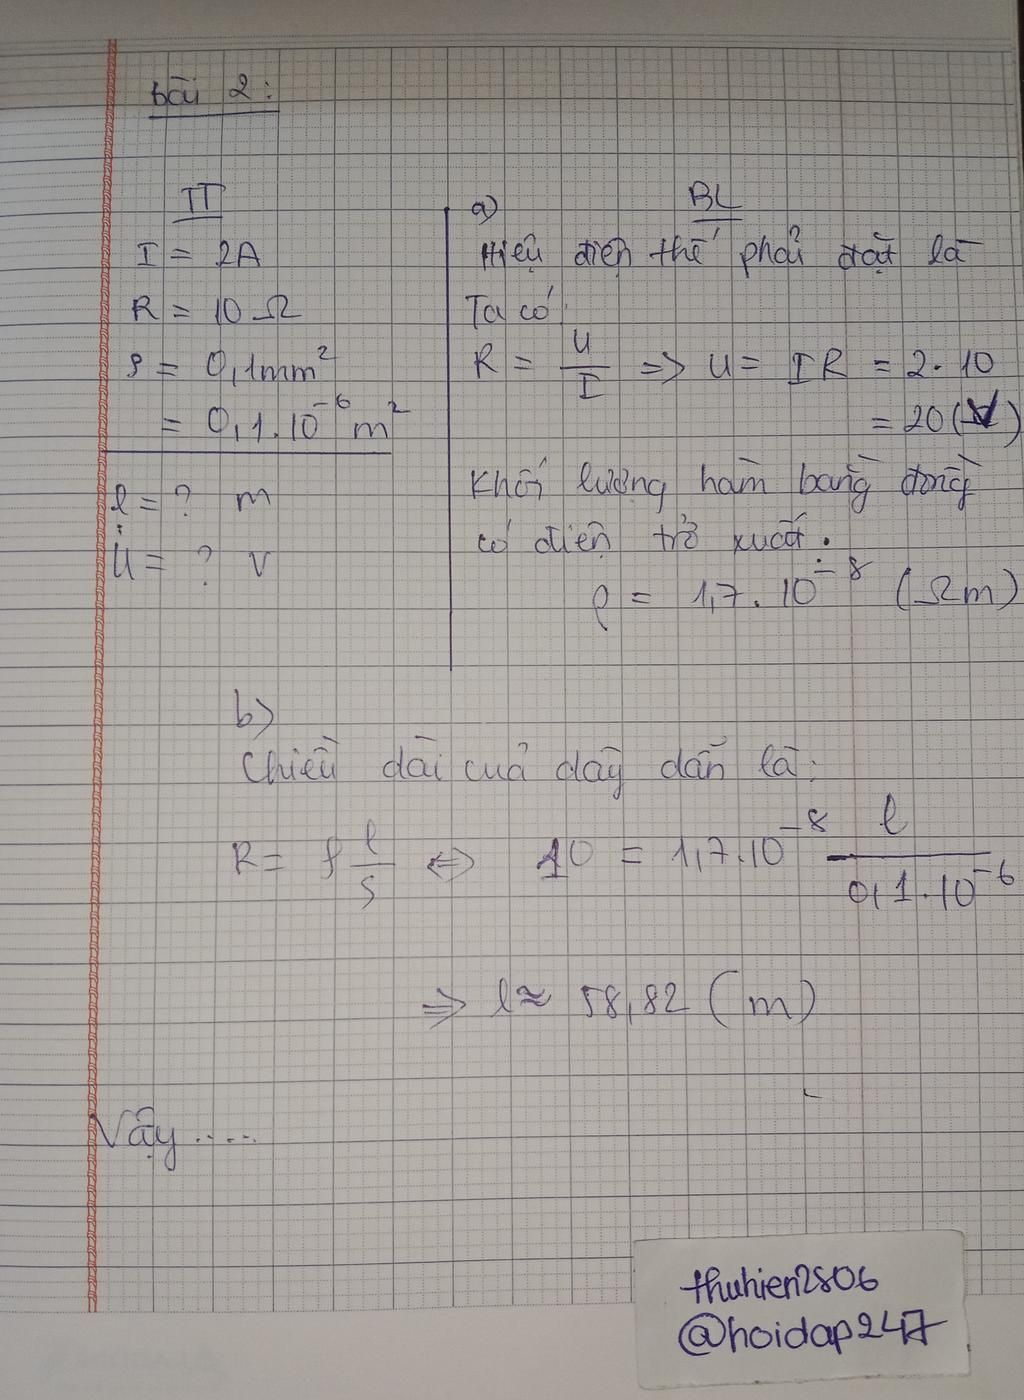 Bài 2:
TT
I = 2A
R = 10 Ω
S = 0,1mm²
= 0,1.10⁻⁶ m²
l = ? m
U = ? V
BL
a)
Hiệu điện thế phải đặt là
Ta có
R = U/I => U = IR = 2.10
= 20 (V)
Khối lượng hàm bằng đồng
có điện trở xuất:
ρ = 1,7.10⁻⁸ (Ωm)
b)
Chiều dài của dây dẫn là:
R = ρ l/S <=> 10 = 1,7.10⁻⁸ l/0,1.10⁻⁶
=> l ≈ 58,82 (m)
Vậy .....
thuhien2806
@hoidap247